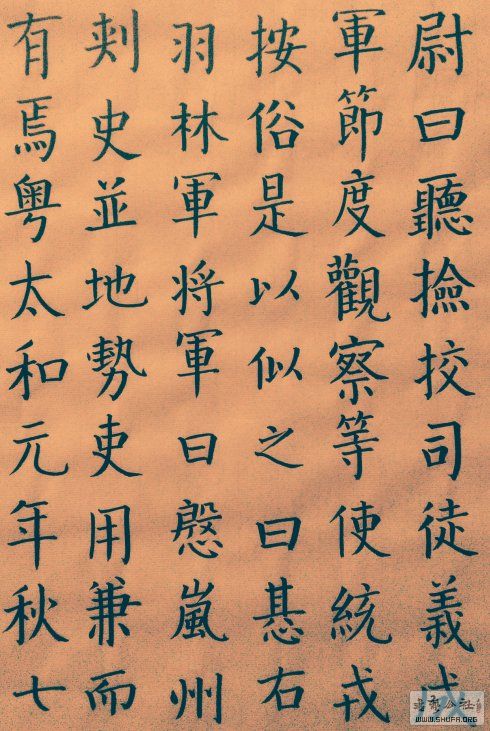 尉曰聽撿挍司徒義
軍節度觀察等使統戎
按俗是以似之曰惎右
羽林軍将軍曰慇嵐州
刾史並地勢吏用兼而
有焉粤太和元年秋七
WWW.SHUFA.ORG